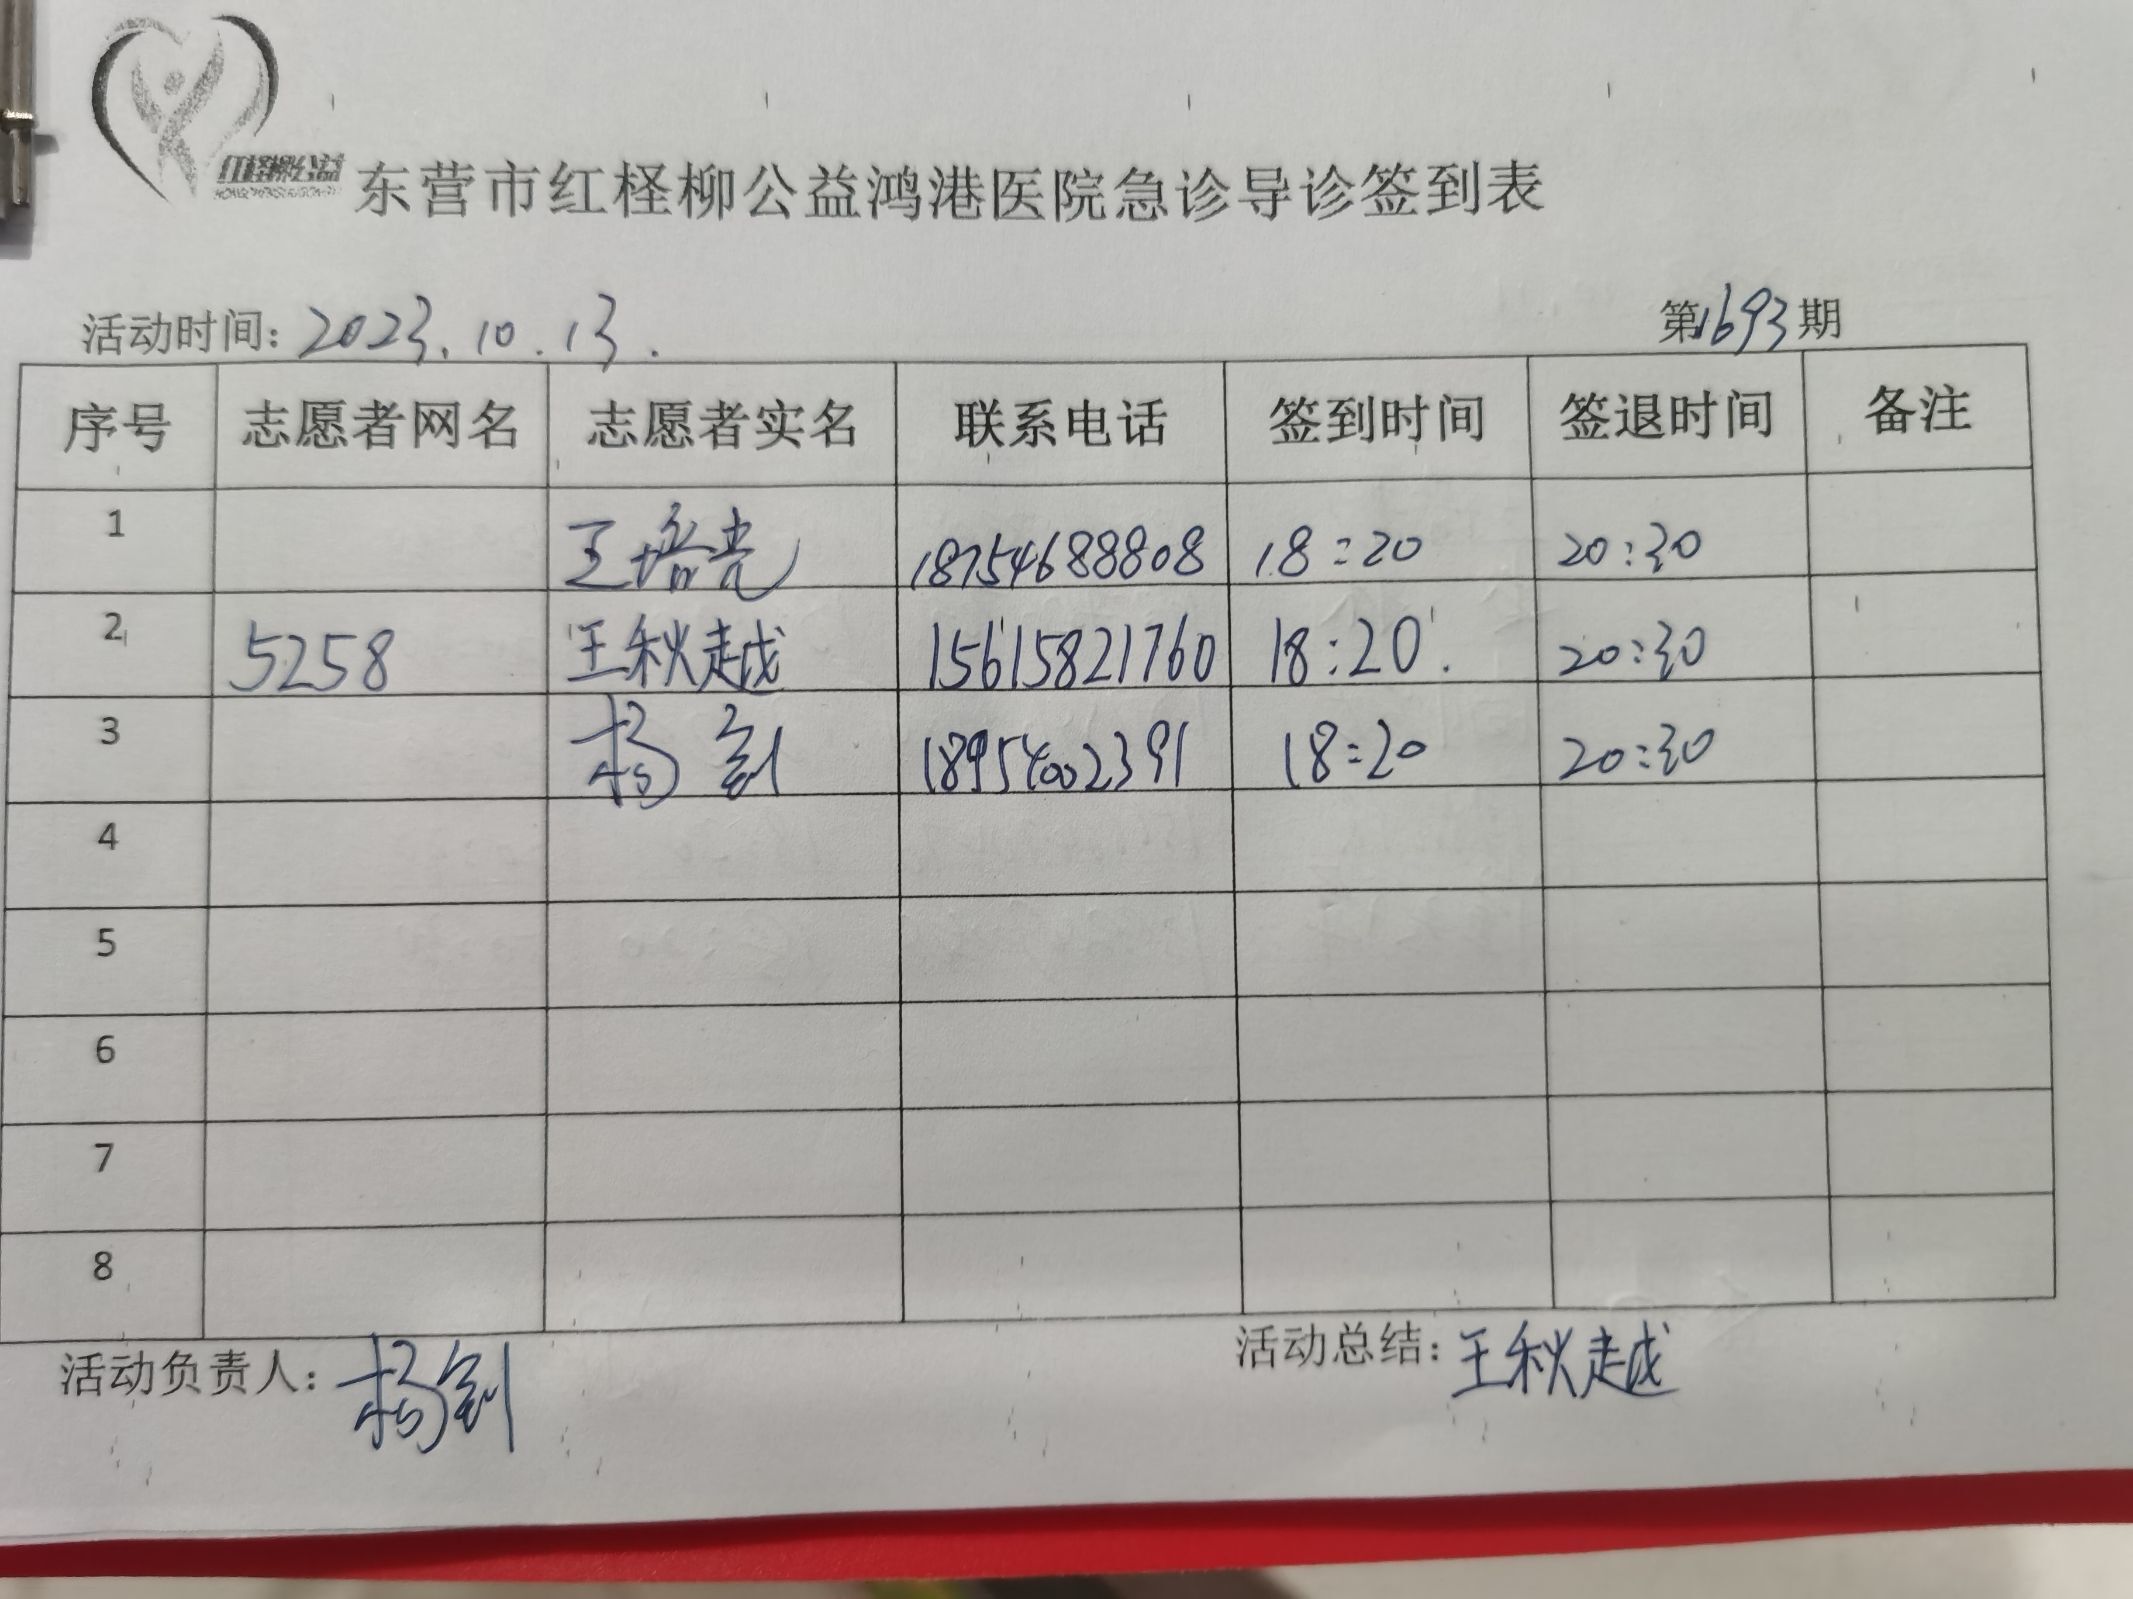 红柽柳公益
东营市红柽柳公益鸿港医院急诊导诊签到表
活动时间: 2023.10.13. 第1693期
序号 志愿者网名 志愿者实名 联系电话 签到时间 签退时间 备注
1 王培亮 18754688808 18:20 20:30
2 5258 王秋越 15615821760 18:20. 20:30
3 杨剑 18954002391 18:20 20:30
4
5
6
7
8
活动负责人: 杨剑 活动总结: 王秋越